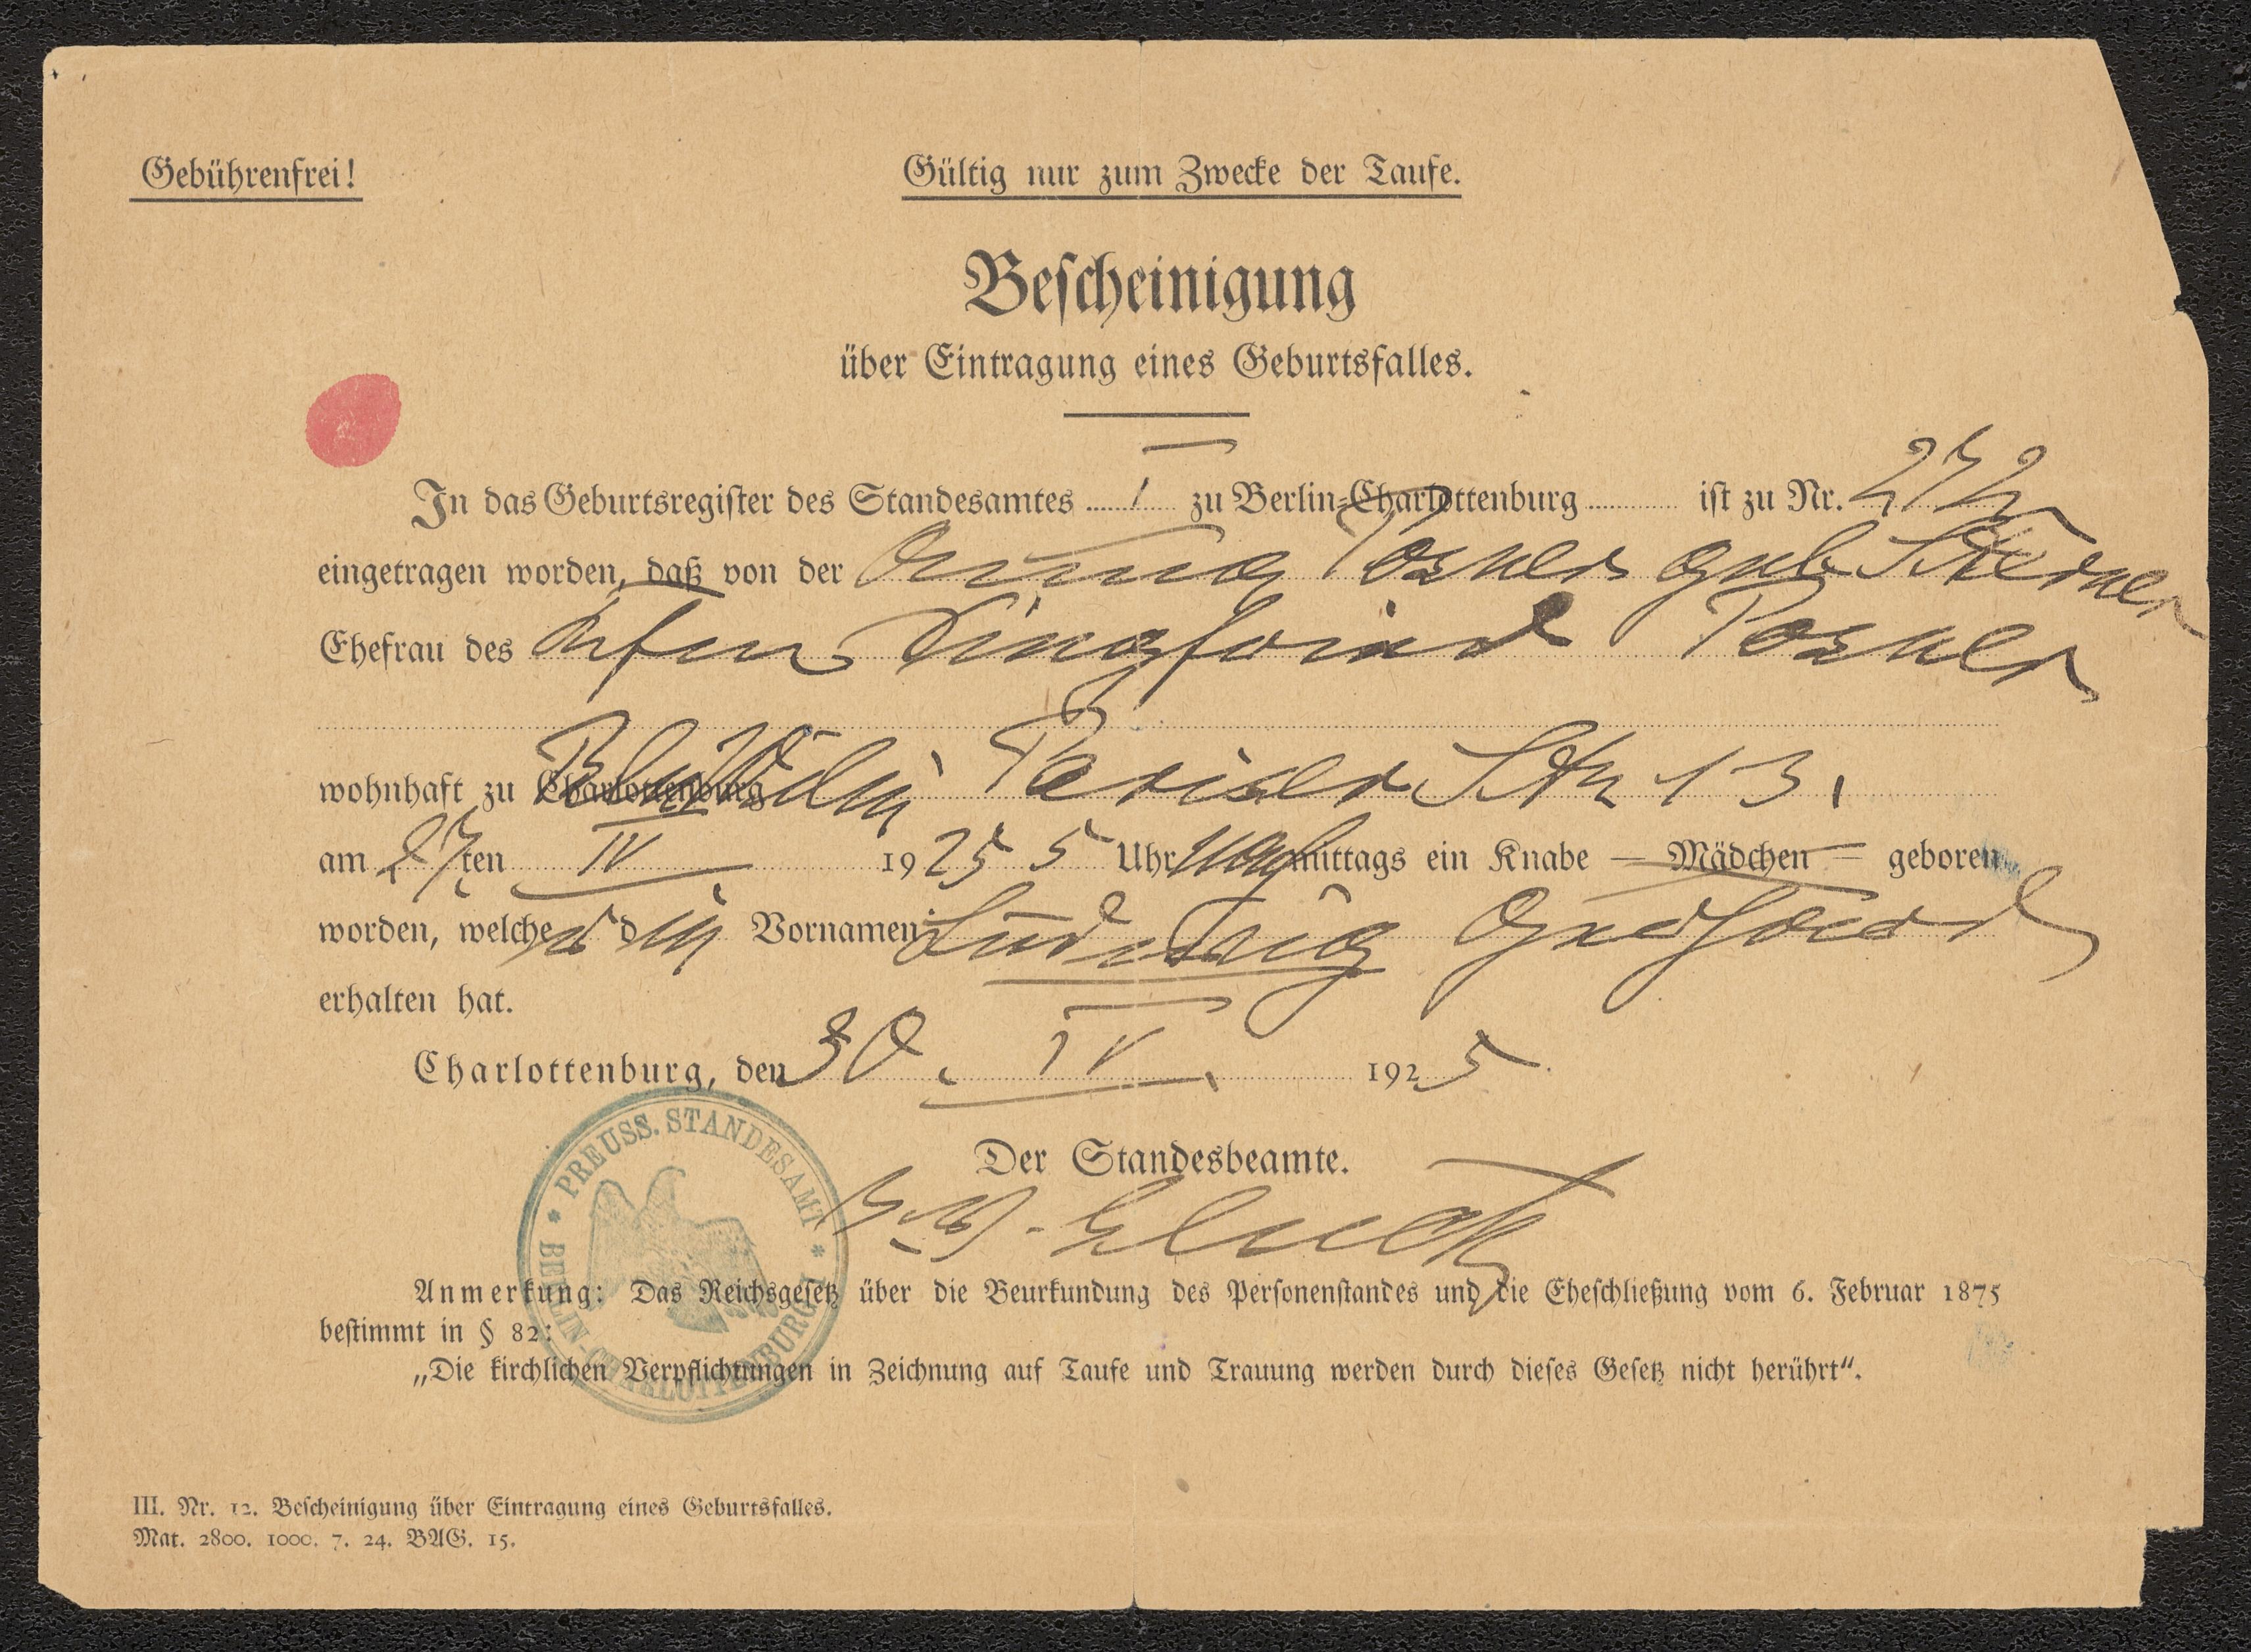 Gebührenfrei!
Gültig nur zum Zwecke der Taufe.
Bescheinigung
über Eintragung eines Geburtsfalles.
In das Geburtsregister des Standesamtes I zu Berlin-Charlottenburg ist zu Nr. 272
eingetragen worden, daß von der Posner geb Sterner
Ehefrau des Posner
wohnhaft zu Charlottenburg Pariser Str 13.
am 27ten IV 1925 5 Uhr nachmittags ein Knabe — Mädchen — geboren
worden, welcher d ie Vornamen: Ludwig Gerhard
erhalten hat.
Charlottenburg, den 30. IV. 1925
Der Standesbeamte.
PREUSS. STANDESAMT * BERLIN-CHARLOTTENBURG I *
Anmerkung: Das Reichsgesetz über die Beurkundung des Personenstandes und die Eheschließung vom 6. Februar 1875
bestimmt in § 82:
„Die kirchlichen Verpflichtungen in Zeichnung auf Taufe und Trauung werden durch dieses Gesetz nicht berührt“.
III. Nr. 12. Bescheinigung über Eintragung eines Geburtsfalles.
Mat. 2800. 1000. 7. 24. BAG. 15.